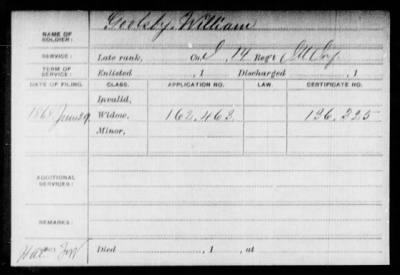 NAME OF SOLDIER: Goolsby, William
SERVICE: Late rank, Co. I, 14 Reg't Ill Inf
TERM OF SERVICE: Enlisted , 1 Discharged , 1
DATE OF FILING. CLASS. APPLICATION NO. LAW. CERTIFICATE NO.
Invalid,
1868 June 29. Widow, 162,463 136,225
Minor,
ADDITIONAL SERVICES:
REMARKS:
Died , 1 , at